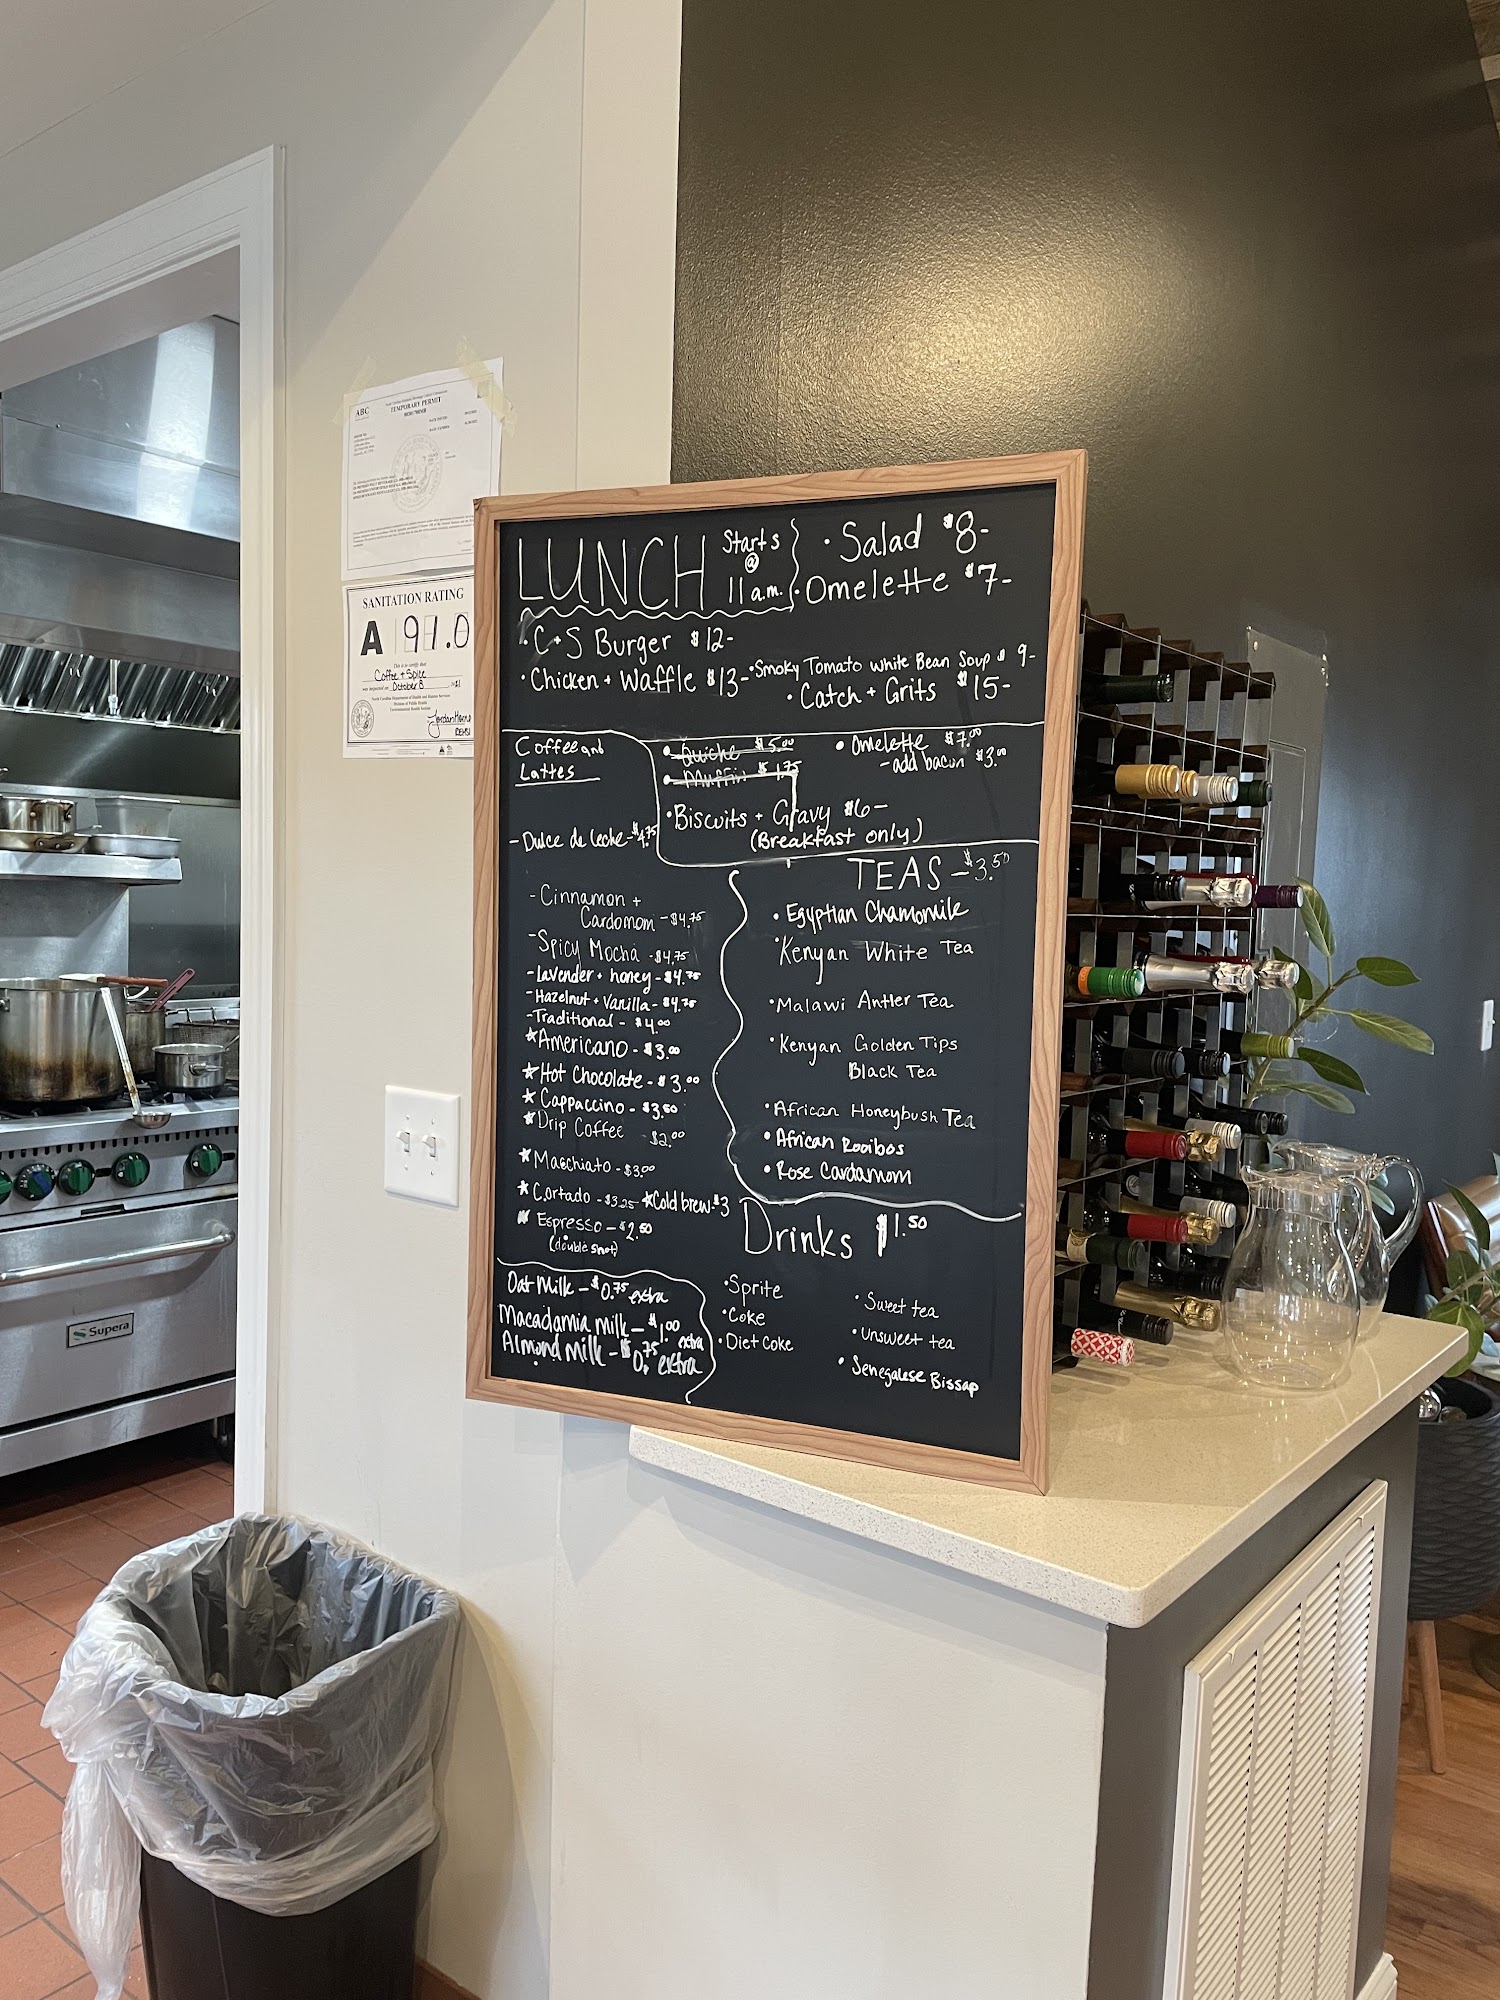 ABC
TEMPORARY PERMIT
SANITATION RATING
A 91.0
This is to certify that
Coffee + Spice
was inspected on October 8
North Carolina Department of Health and Human Services
Division of Public Health
Environmental Health Section
Supera
LUNCH Starts
@
11 a.m.
• Salad $8-
• Omelette $7-
• C+S Burger $12-
• Chicken + Waffle $13-
• Smoky Tomato white Bean Soup $9-
• Catch + Grits $15-
Coffee and
Lattes
• Quiche $5.00
• Muffin $1.75
• Omelette $7.00
- add bacon $3.00
• Biscuits + Gravy $6-
(Breakfast only)
- Dulce de leche - $4.75
- Cinnamon +
Cardomom - $4.75
- Spicy Mocha - $4.75
- Lavender + honey - $4.75
- Hazelnut + Vanilla - $4.75
- Traditional - $4.00
★ Americano - $3.00
★ Hot Chocolate - $3.00
★ Cappaccino - $3.50
★ Drip Coffee - $2.00
★ Macchiato - $3.00
★ Cortado - $3.25 ★ Cold brew - $3
★ Espresso - $2.50
(double shot)
Oat Milk - $0.75 extra
Macadamia milk - $1.00 extra
Almond Milk - $0.75 extra
TEAS - $3.50
• Egyptian Chamomile
• Kenyan White Tea
• Malawi Antler Tea
• Kenyan Golden Tips
Black Tea
• African Honeybush Tea
• African Rooibos
• Rose Cardamom
Drinks $1.50
• Sprite
• Coke
• Diet Coke
• Sweet tea
• Unsweet tea
• Senegalese Bissap